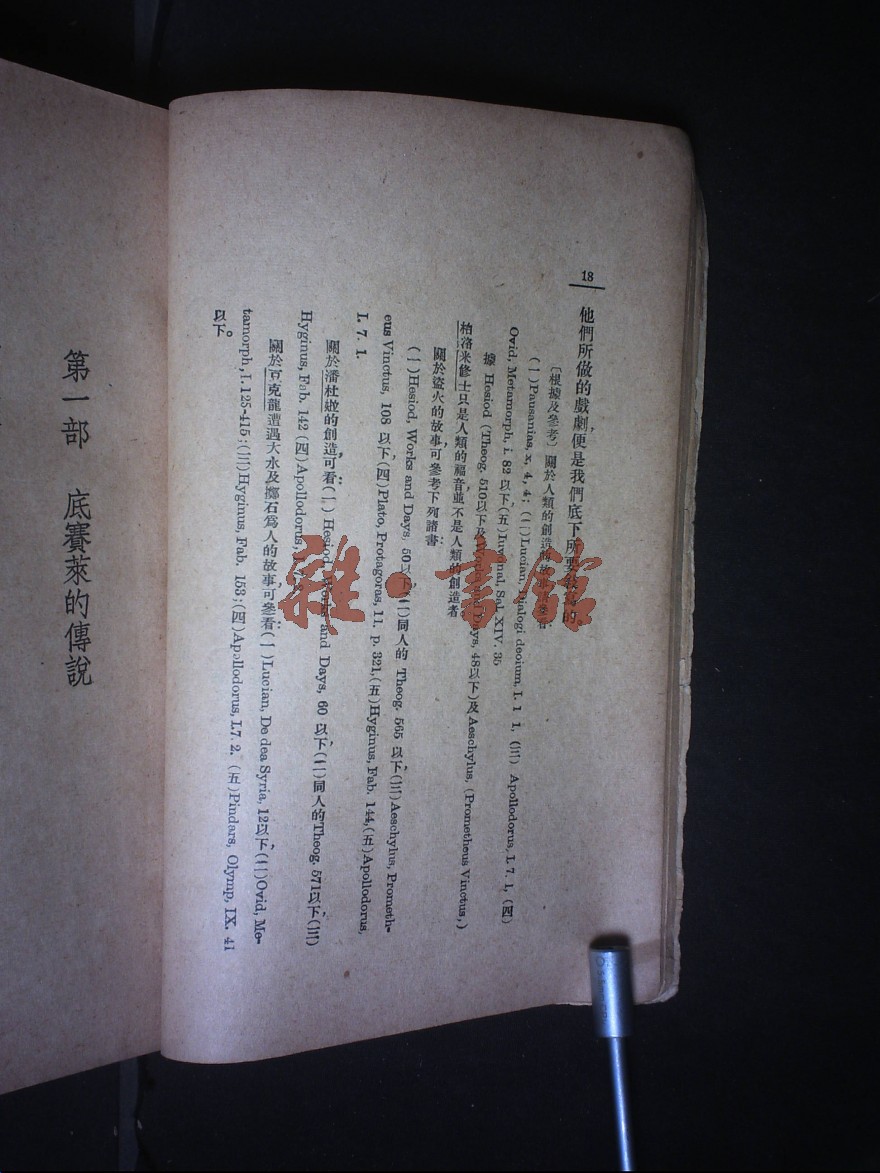 18
他們所做的戲劇,便是我們底下所要 的
〔根據及參考〕關於人類的創造的故事 參看:
(一)Pausanias, x, 4, 4; (二)Lucian, ialogi deoium, I. 1 1, (三) Apollodorus, I. 7. 1, (四)
Ovid, Metamorph, i. 82 以下,(五)Iuvenal, Sal. XIV. 35
據 Hesiod (Theog. 510以下及 Days, 48以下)及Aeschylus, (Prometheus Vinctus,)
柏洛米修士只是人類的福音,並不是人類的創造者
關於盜火的故事,可參考下列諸書:
(一)Hesiod, Works and Days, 50以下,(二)同人的 Theog. 565 以下,(三)Aeschylus, Prometh-
eus Vinctus, 108 以下,(四)Plato, Protagoras, 11. p. 321,(五)Hyginus, Fab. 144,(五)Apollodorus,
I. 7. 1.
關於潘杜娭的創造,可看(一)Hesiod, Works and Days, 60 以下,(二)同人的Theog. 571以下,(三)
Hyginus, Fab. 142 (四)Apollodorus, 7.
關於 克龍遭遇大水及擲石爲人的故事,可參看:(一)Lucian, De dea Syria, 12以下,(二)Ovid, Me-
tamorph, I. 125-415;(三)Hyginus, Fab. 153;(四)Apollodorus, I. 7. 2. (五)Pindars, Olymp, IX. 41
以下。
第一部 底賽萊的傳說
雜·書館